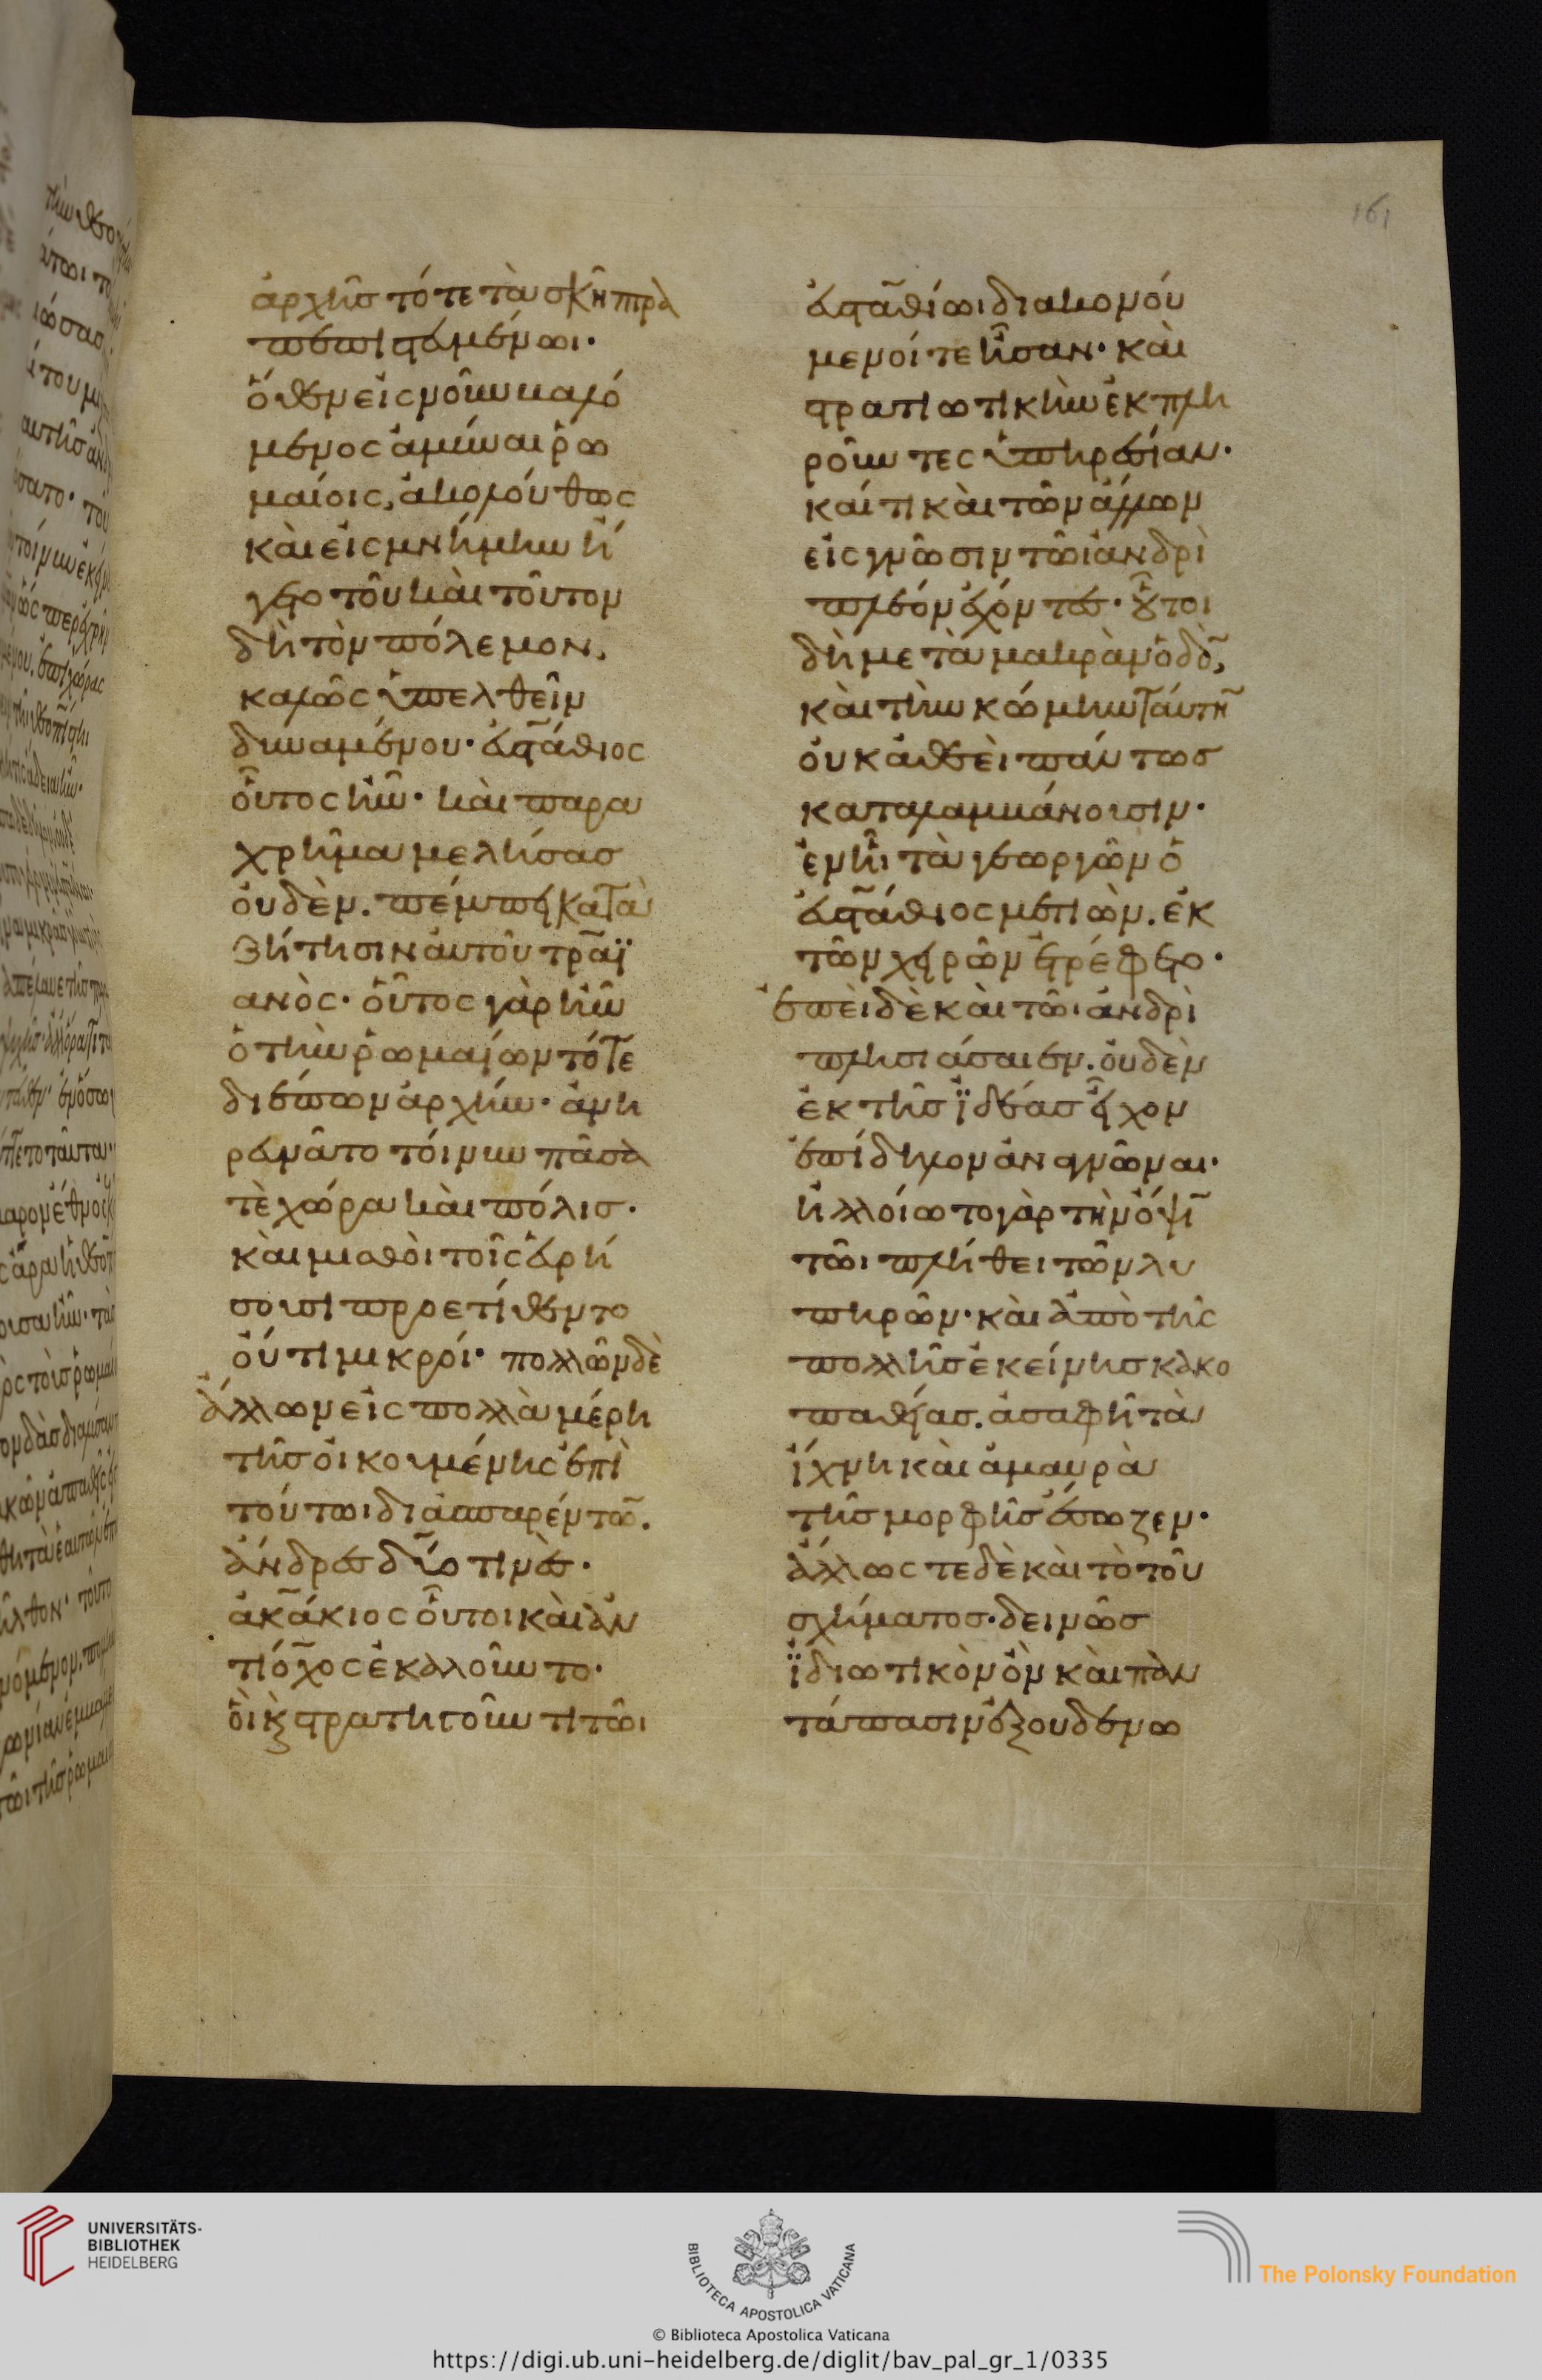 161
ἀρχῆς τότε τὰ σκῆπτρα
πεπιστευμένωι·
ὅθεν εἰς νοῦν βαλό
μενος ἀμῦναι ῥω
μαίοις, ἀκολούθως
καὶ εἰς μνήμην ἥ
γετο τοῦ καὶ τοῦτον
δὴ τὸν πόλεμον,
καλῶς ὑπελθεῖν
δυναμένου· εὐστάθιος
οὗτος ἦν· καὶ παρα
χρῆμα μελλήσας
οὐδὲν. πέμπει κατὰ
ζήτησιν αὐτοῦ τραϊ
ανὸς· οὗτος γὰρ ἦν
ὁ τὴν ῥωμαίων τότε
διέπων ἀρχήν· ἀνη
ρευνᾶτο τοίνυν πᾶσα
τὲ χώρα καὶ πόλις·
καὶ μισθοὶ τοῖς εὑρή
σουσι προετίθεντο
οὔτι μικροί· πολλῶν δὲ
ἄλλων εἰς πολλὰ μέρη
τῆς οἰκουμένης ἐπὶ
τούτωι διασπαρέντων.
ἄνδρες δύο τινὲς·
ἀκάκιος οὗτοι καὶ ἀν
τίοχος ἐκαλοῦντο·
οἳ καὶ στρατηγοῦντι τῶι
εὐσταθίωι διακονού
μενοί τε ἦσαν· καὶ
στρατιωτικὴν ἐκπλη
ροῦντες ὑπηρεσίαν·
καί τι καὶ τῶν ἄλλων
εἰς γνῶσιν τῶι ἀνδρὶ
πλέον ἔχοντες· οὗτοι
δὴ μετὰ μακρὰν ὁδὸν,
καὶ τὴν κώμην ταύτην
οὐκ ἀθεεὶ πάντως
καταλαμβάνουσιν·
ἐν ἧι τὰ γεωργῶν ὁ
εὐστάθιος μετιὼν. ἐκ
τῶν χειρῶν ἐτρέφετο·
ἐπεὶ δὲ καὶ τῶι ἀνδρὶ
πλησιάσαιεν. οὐδὲν
ἐκ τῆς ἰδέας εἶχον
ἐπίδηλον ἀναγνῶναι·
ἠλλοίωτο γὰρ τὴν ὄψιν
τῶι πλήθει τῶν λυ
πηρῶν· καὶ ἀπὸ τῆς
πολλῆς ἐκείνης κακο
παθείας. ἀσαφῆ τὰ
ἴχνη καὶ ἀμαυρὰ
τῆς μορφῆς ἔσωζεν·
ἄλλως τε δὲ καὶ τὸ τοῦ
σχήματος· δεινῶς
ἰδιωτικὸν ὂν καὶ παν
τάπασιν ἐξουδενω
UNIVERSITÄTS-
BIBLIOTHEK
HEIDELBERG
BIBLIOTECA APOSTOLICA VATICANA
The Polonsky Foundation
© Biblioteca Apostolica Vaticana
https://digi.ub.uni-heidelberg.de/diglit/bav_pal_gr_1/0335